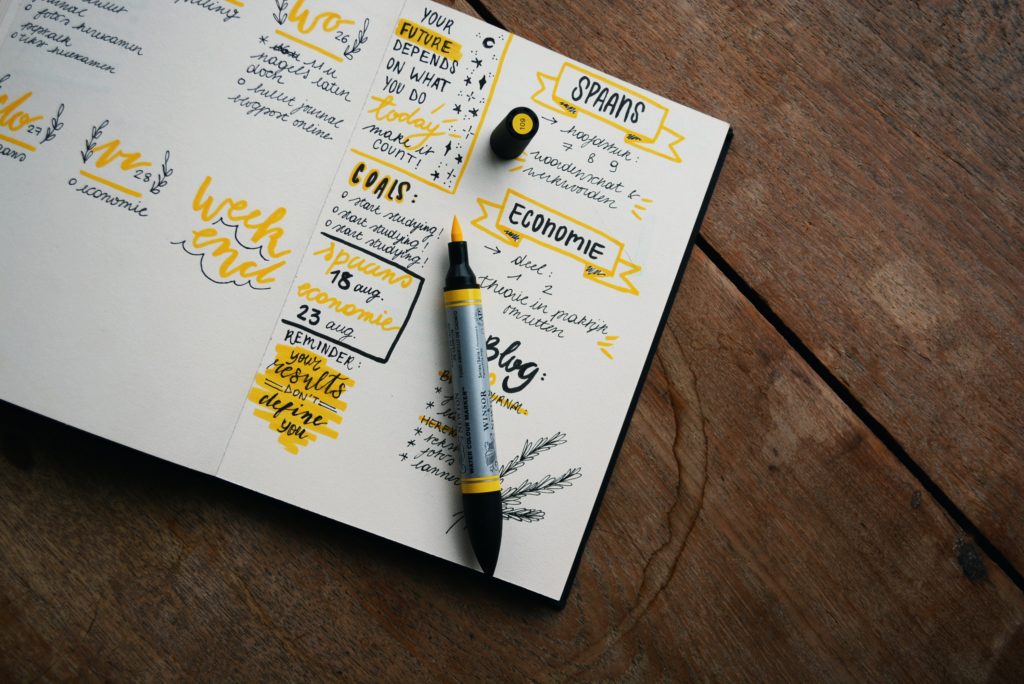 o foto's hierexamen
o tekst hierexamen
wo
26
* 11u
nagels laten
doen
o bullet journal
blogpost online
do
27
vr
28
o economie
week
end
YOUR
FUTURE
DEPENDS
ON WHAT
YOU DO
today
make it
COUNT!
GOALS:
o start studying!
o start studying!
o start studying!
spaans
18 aug.
economie
23 aug.
REMINDER:
your
results
DON'T
define
you
SPAANS
→ hoofdstuk:
7 8 9
woordenschat &
werkwoorden
ECONOMIE
→ deel:
1 2
theorie in praktijk
omzetten
Blog:
109
WATER COLOUR MARKER
WINSOR